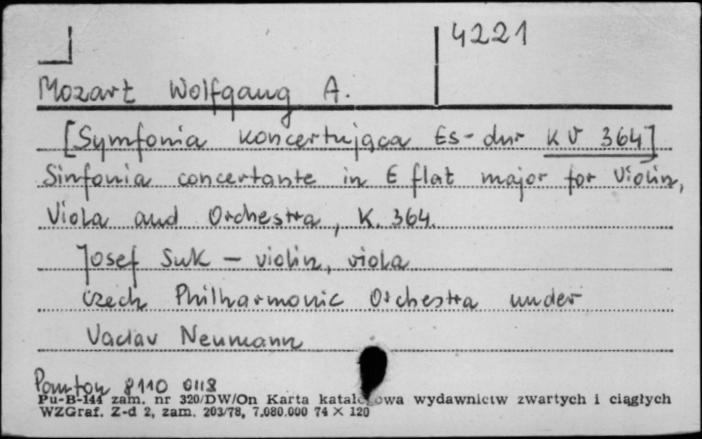 4221
Mozart Wolfgang A.
[Symfonia koncertująca Es-dur KV 364]
Sinfonia concertante in E flat major for Violin,
Viola and Orchestra, K. 364.
Josef Suk – violin, viola
Czech Philharmonic Orchestra under
Vaclav Neumann
Panton 8110 0118
Pu-B-144 zam. nr 320/DW/On Karta katalogowa wydawnictw zwartych i ciągłych
WZGraf. Z-d 2, zam. 203/78, 7.080.000 74 × 120